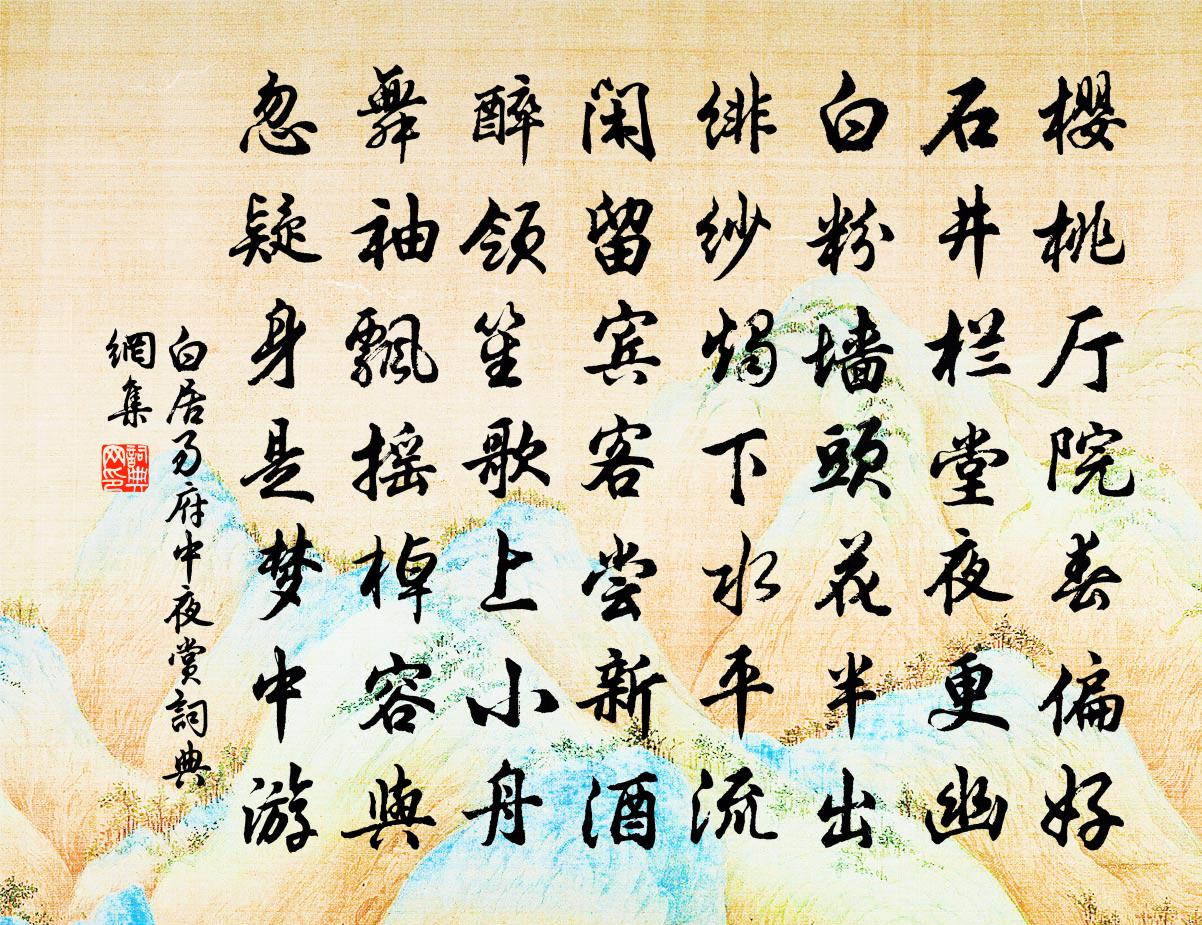 樱桃厅院春偏好
石井栏堂夜更幽
白粉墙頭花半出
绯纱烛下水平流
闲留宾客尝新酒
醉领笙歌上小舟
舞袖飘摇棹容與
忽疑身是梦中游
白居易府中夜赏詞典
網集
詞典
网印